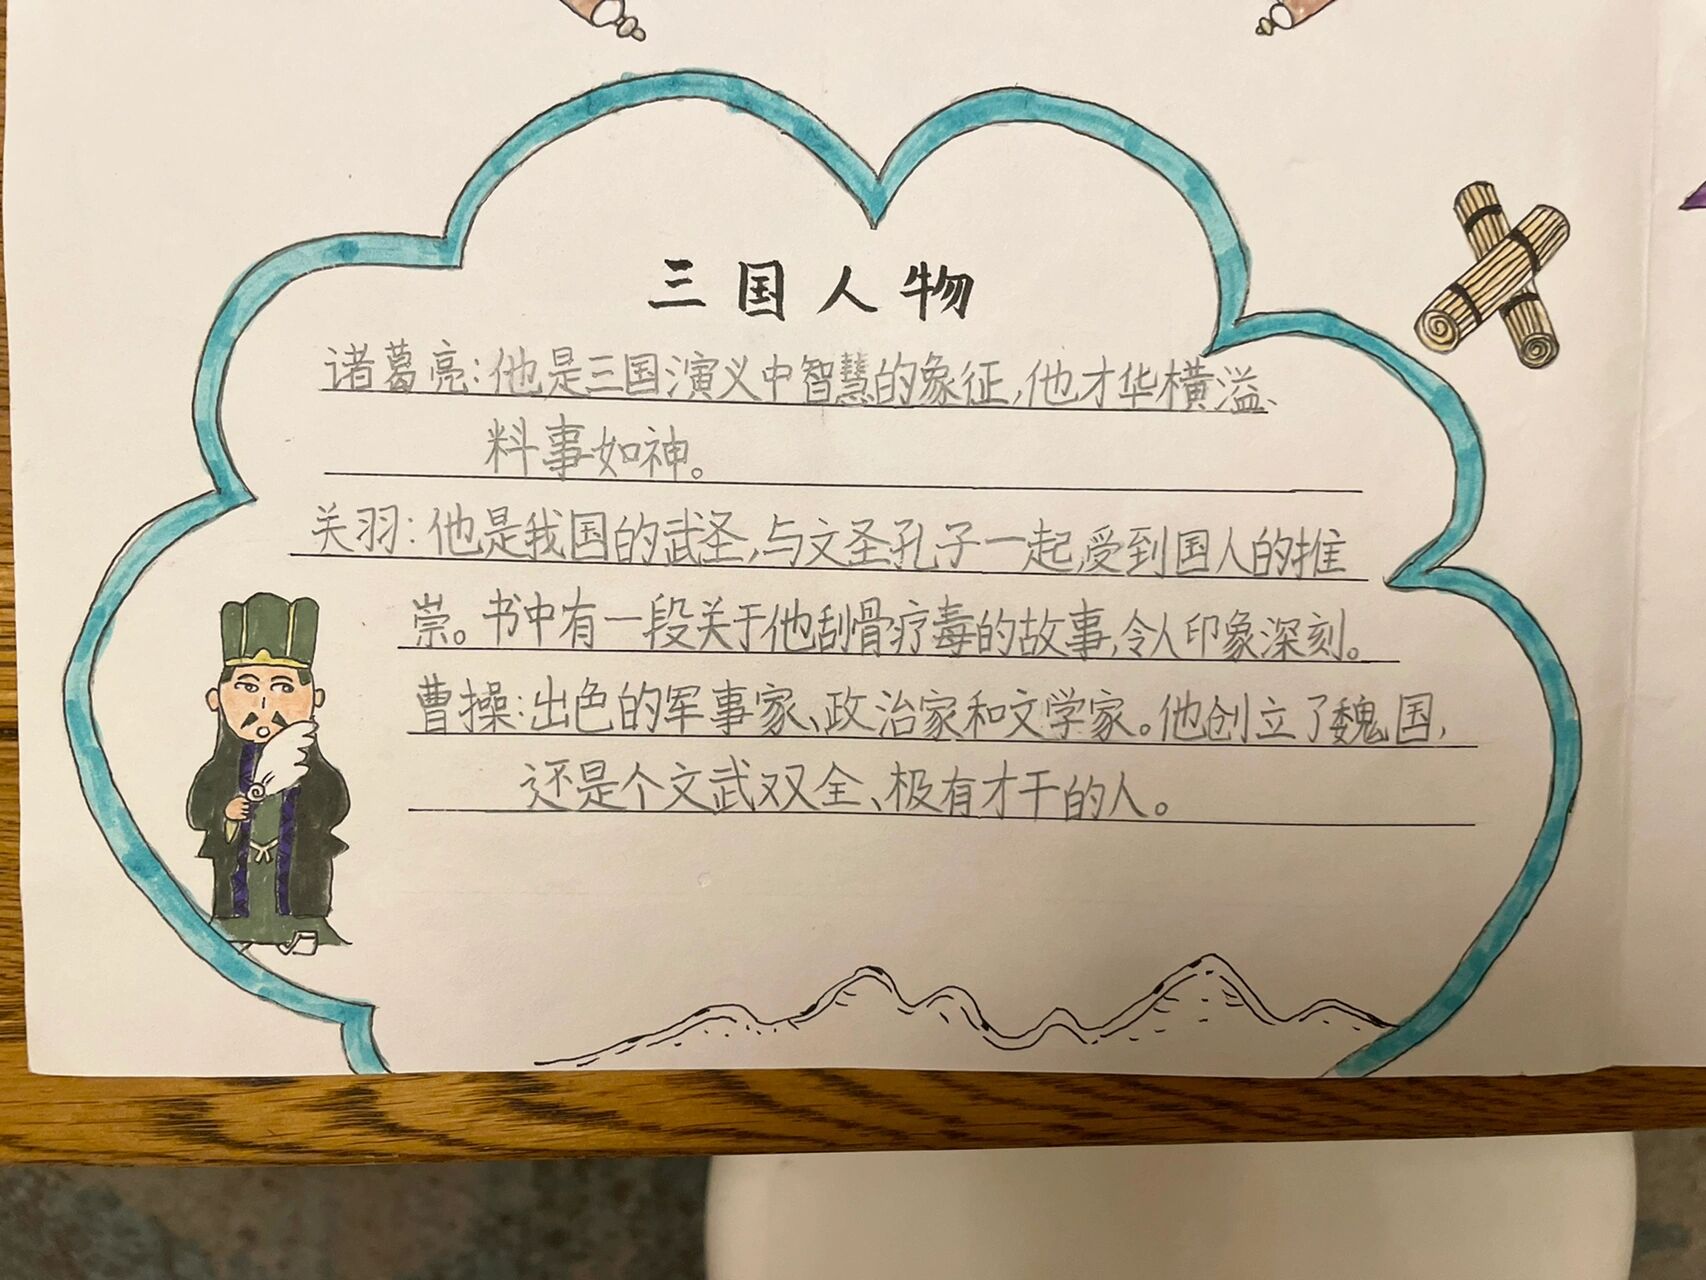 三国人物
诸葛亮:他是三国演义中智慧的象征,他才华横溢、
料事如神。
关羽:他是我国的武圣,与文圣孔子一起,受到国人的推
崇。书中有一段关于他刮骨疗毒的故事,令人印象深刻。
曹操:出色的军事家、政治家和文学家。他创立了魏国,
还是个文武双全、极有才干的人。